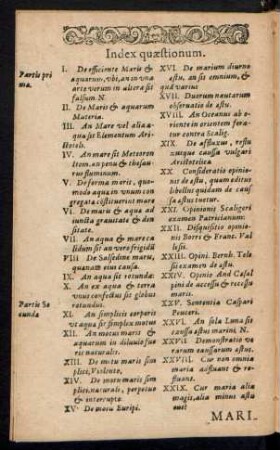 Index quæstionum.
Partis pri
ma.
I. De efficiente Maris &
aquarum, vbi, an in vna
arte verum in altera sit
falsum N.
II. De Maris & aquarum
Materia.
III. An Mare vel alia aqua
sit Elementum Aristotelis.
IV. An mare sit Meteoron
item, an penu & thesaurus
fluminum.
V. De forma maris, quomodo
aqua in vnum congregata
VI. De maris & aqua ad
iuncta grauitate & densitate.
VII. An aqua & mare eiusdem
sit an vero frigidi
VIII De Salsedine maris,
quanam eius causa.
IX. An aqua sit rotunda
X. An ex aqua & terra
vnus confectus sit globus
rotundus.
Partis Se
cunda
XI. An simplicis corporis
vt aqua sit simplex motus
XII. An motus maris &
aquarum in diluuio fuerit
naturalis.
XIII. De motu maris simplici,
Violento,
XIV. De motu maris simplici,
naturali, perpetuo
& interrupto.
XV. De motu Euripi.
XVI. De marium diurno
æstu, an sit omnium, &
quà varius
XVII. Duorum nautarum
obseruatio de æstu.
XVIII. An Oceanus ab oriente
in orientem feratur
contra Scalig.
XIX. De affluxu, refluxuque
causa vulgari
Aristotelica
XX. Consideratio opinionis
de æstu, quam editus
libellus quidam de causa
æstus tuetur.
XXI. Opinionis Scaligeri
examen Patricianum:
XXII. Disquisitio opinionis
Borri & Franc. Vallesii.
XXIII. Opini. Bernh. Telesii
examen de æstu.
XXIV. Opinio And. Cæsalpini
de accessu & recessu
maris.
XXV. Sententia Caspari
Peuceri.
XXVI. An sola Luna sit
causa æstus marini, N.
XXVII. Demonstratio verarum
causarum æstus.
XXVIII. Cur non omnia
maria adfluant & refluant.
XXIX. Cur maria alia
magis, alia minus æstuent
MARI.